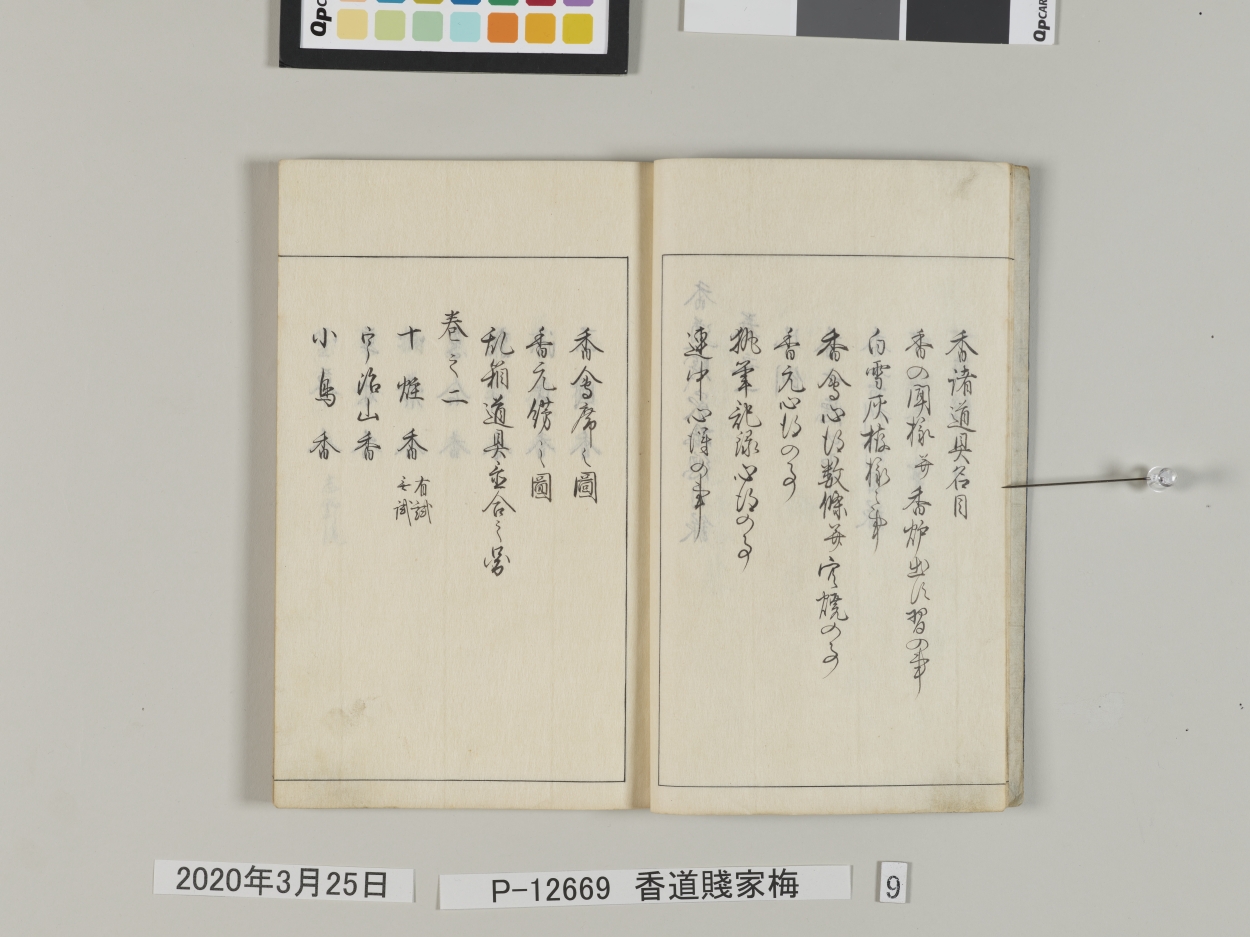 香諸道具名目
香の聞様并香炉出す習の事
白雪灰拵様之事
香會心得数條并空焼の事
香元心得の事
執筆記録心得の事
連中心得の事
香會席之圖
香元餝之圖
乱箱道具立合之圖
巻之二
十炷香 有試 無試
宇治山香
小鳥香
2020年3月25日
P-12669 香道賤家梅
9
QpCAR